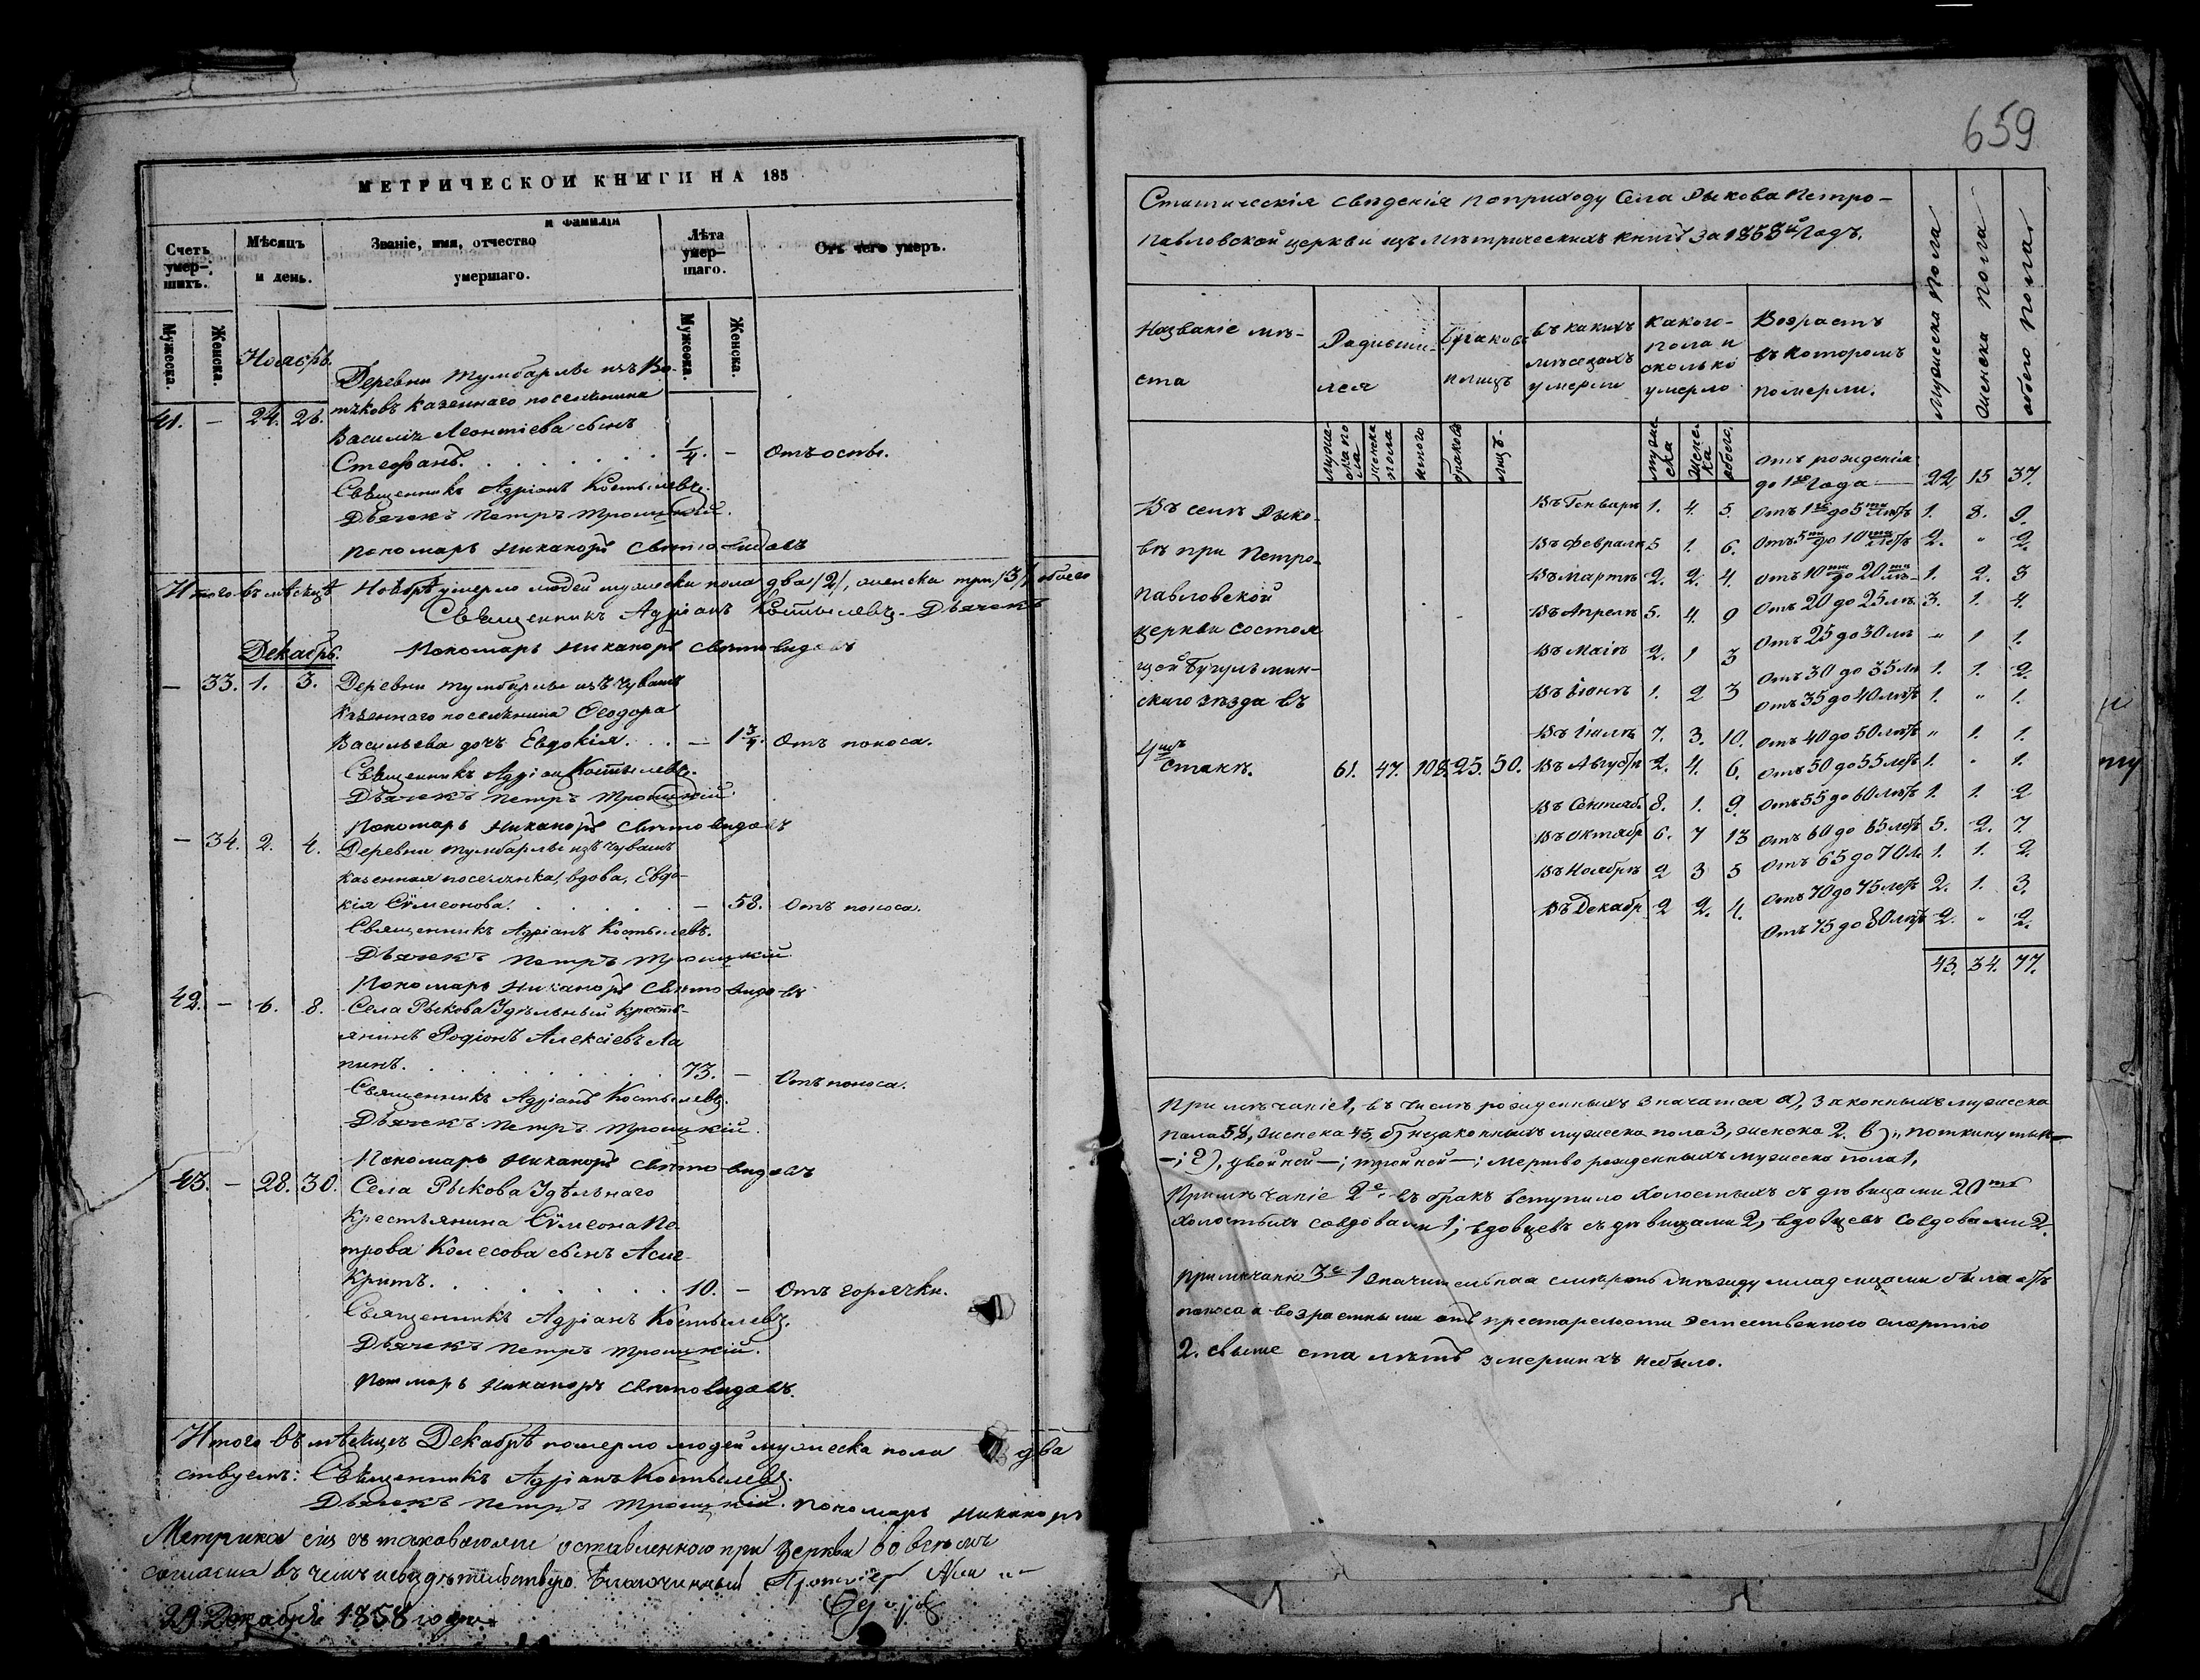 МЕТРИЧЕСКОЙ КНИГИ НА 185
Счетъ умер-шихъ.
Мѣсяцъ и день.
Званіе, имя, отчество и фамилія умершаго.
Лѣта умер-шаго.
Отъ чего умеръ.
Мужеска. Женска. Мужеска. Женска.
Ноябрь.
Деревни Тумбарлы изъ Во-
тяковъ казеннаго поселянина
41. — 24. 26. Василія Леонтіева сынъ
Стефанъ. 1/4. — Отъ оспы.
Священникъ Адріанъ Костылевъ.
Дьячекъ Петръ Троицкій.
Пономарь Никаноръ Святовидовъ
Итого въ мѣсяцѣ Ноябрѣ умерло людей мужеска пола два /2/, женска три /3/ обоего
Священникъ Адріанъ Костылевъ. Дьячекъ
Пономарь Никаноръ Святовидовъ
Декабрь.
— 33. 1. 3. Деревни Тумбарлы изъ Чувашъ
казеннаго поселянина Ѳеодора
Васильева дочь Евдокія. — 1 3/4. Отъ поноса.
Священникъ Адріанъ Костылевъ.
Дьячекъ Петръ Троицкій.
Пономарь Никаноръ Святовидовъ
— 34. 2. 4. Деревни Тумбарлы изъ Чувашъ
казенная поселянка, вдова, Евдо-
кія Сѵмеонова. — 58. Отъ поноса.
Священникъ Адріанъ Костылевъ.
Дьячекъ Петръ Троицкій.
Пономарь Никаноръ Святовидовъ
42. — 6. 8. Села Рыкова Удѣльный кресть-
янинъ Родіонъ Алексіевъ Ла
пинъ. 73. — Отъ поноса.
Священникъ Адріанъ Костылевъ.
Дьячекъ Петръ Троицкій.
Пономарь Никаноръ Святовидовъ
43. — 28. 30. Села Рыкова Удѣльнаго
крестьянина Сѵмеона Пе
трова Колесова сынъ Асин-
критъ. 10. — Отъ горячки.
Священникъ Адріанъ Костылевъ.
Дьячекъ Петръ Троицкій.
Пономарь Никаноръ Святовидовъ.
Итого въ мѣсяцѣ Декабрѣ померло людей мужеска пола два
ствуемъ: Священникъ Адріанъ Костылевъ.
Дьячекъ Петръ Троицкій. Пономарь Никаноръ
Метрика сія съ таковою же оставленною при Церкви во всемъ
согласна въ чемъ и свидѣтельствую. Благочинный
29 Декабря 1858 года.
659
Статическія свѣденія поприходу Села Рыкова Петро-
павловской церкви изъ Метрическихъ книгъ за 1858й Годъ.
Названіе мѣ-ста
Родивши-лся
Браковъ и лицъ
Въ какихъ мѣсяцахъ умерли
Какого-пола и сколько умерло
Возрастъ въ которомъ померли.
Мужеска пола
Женска пола
обоего пола
мужеска пола женска пола итого браковъ лицъ. мужеска женска обоего.
Въ селѣ Рыко-
вѣ при Петро-
павловской
церкви состоя
щей Бугульмин-
скаго уѣзда въ
4мъ станѣ. 61. 47. 108. 25. 50.
Въ Генварѣ 1. 4. 5.
Въ Февралѣ 5 1. 6.
Въ Мартѣ 2. 2. 4.
Въ Апрелѣ 5. 4. 9
Въ Маіѣ 2. 1 3
Въ Іюнѣ 1. 2 3
Въ Іюлѣ 7. 3. 10.
Въ Августѣ 2. 4. 6.
Въ Сентяб. 8. 1. 9.
Въ Октябр 6. 7 13
Въ Ноябрѣ 2 3 5
Въ Декабр 2 2. 4.
Отъ рожденія
до 1го Года — 22, 15 37.
Отъ 1го до 5ти лѣтъ 1. 8. 9.
Отъ 5ти до 10ти лѣтъ 2. " 2.
Отъ 10ти до 20ти лѣ- 1. 2. 3
Отъ 20 до 25 лѣ. 3. 1. 4.
Отъ 25 до 30 лѣ " 1 1.
Отъ 30 до 35 лѣ 1. 1. 2.
Отъ 35 до 40 лѣтъ 1. " 1.
Отъ 40 до 50 лѣтъ " 1. 1.
Отъ 50 до 55 лѣтъ 1. " 1.
Отъ 55 до 60 лѣтъ 1. 1. 2
Отъ 60 до 65 лѣтъ 5. 2. 7.
Отъ 65 до 70 л. 1. 1. 2.
Отъ 70 до 75 лѣтъ 2. 1. 3.
Отъ 75 до 80 лѣтъ 2. " 2.
43. 34. 77.
Примѣчаніе 1, въ числѣ рожденныхъ значатся а), законныхъ мужеска
пола 58, женска 45, б) незаконныхъ мужеска пола 3, женска 2. в) „ поткинутых
—; г), двойней —; тройней —; мертво рожденныхъ мужеска пола 1,
Примѣчаніе 2е. въ бракъ вступило холостыхъ съ дѣвицами 20ть
холостыхъ совдовами 1; вдовцевъ съ дѣвицами 2, вдовцевъ совдовами 2.
Примѣчаніе 3е 1 значительная смерть между младенцами была отъ
поноса а возрастными отъ престарелости естественною смертію
2. свыше ста лѣтъ умершихъ небыло.